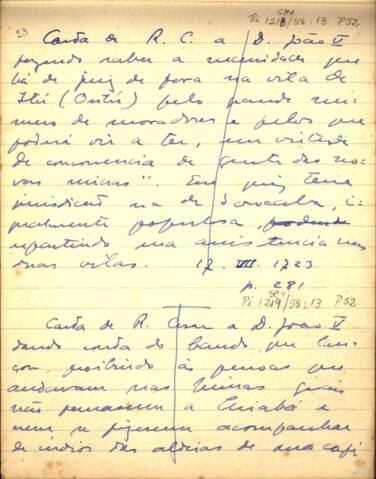 GMA
Pi 1218/58:13 P52
23 Carta de R. C. a D. João V
fazendo saber a necessidade que
há de juiz de fora na vila de
Itú (Outú) pelo grande nú-
mero de moradores e pelos que
poderá vir a ter, em virtude
de concorrencia de gente das no-
vas minas". Esse juiz teria
jurisdição na de Sorocaba, i-
gualmente populosa,
repartindo sua assistencia nas
duas vilas. 17. VIII. 1723
p. 281
Pi 1219/58:13 P52
Carta de R. Cesar a D. João V
dando conta do bando que lan-
çou, proibindo às pessoas que
andavam nas Minas gerais
não passassem a Cuiabá e
nem se fizessem acompanhar
de índios das aldeias de sua capi